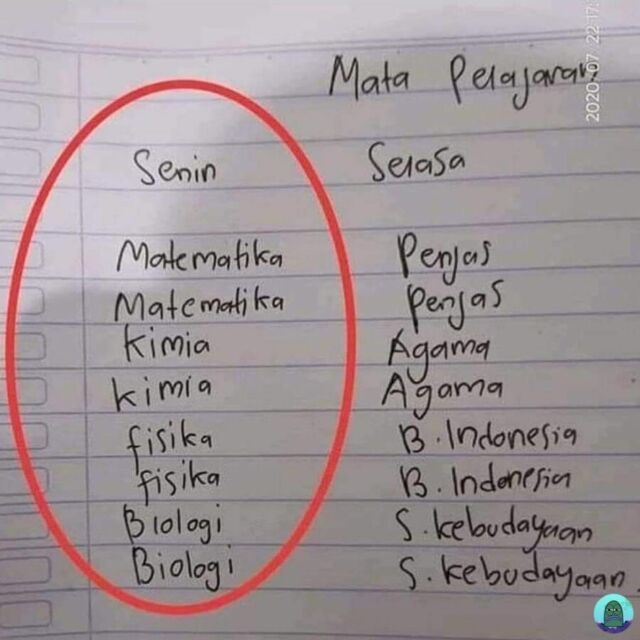 2020/07 22:17
Mata Pelajaran
Senin Selasa
Matematika Penjas
Matematika Penjas
Kimia Agama
Kimia Agama
fisika B. Indonesia
fisika B. Indonesia
Biologi S. Kebudayaan
Biologi S. Kebudayaan